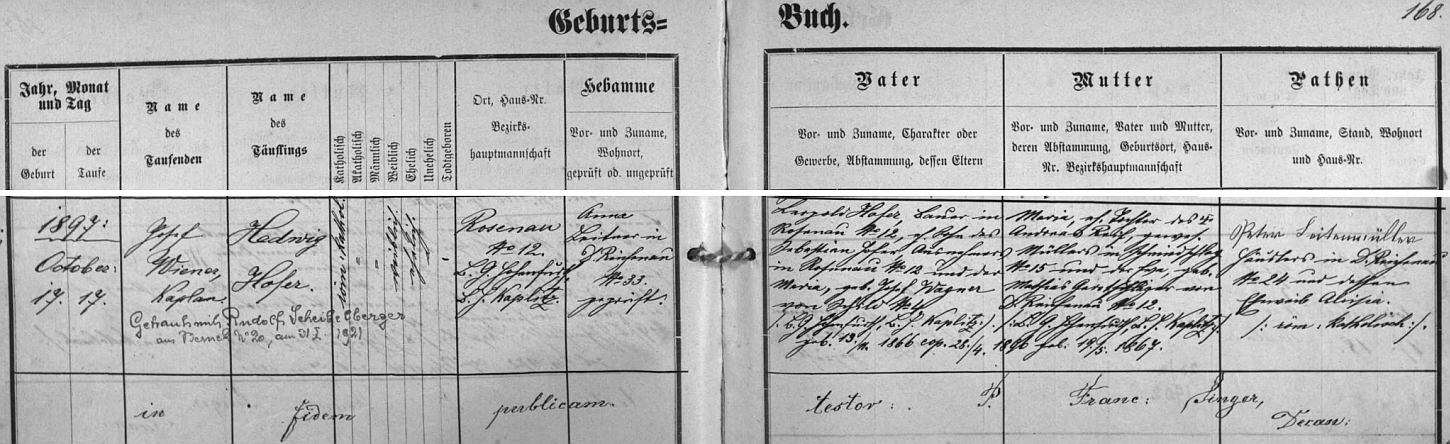 Geburts=
Buch.
168.
Jahr, Monat und Tag
der Geburt
der Taufe
Name des Taufenden
Name des Täuflings
Katholisch
Akatholisch
Männlich
Weiblich
Ehelich
Unehelich
Todtgeboren
Ort, Haus-Nr. Bezirks-hauptmannschaft
Hebamme
Vor- und Zuname, Wohnort, geprüft od. ungeprüft
Vater
Vor- und Zuname, Charakter oder Gewerbe, Abstammung, dessen Eltern
Mutter
Vor- und Zuname, Vater und Mutter, deren Abstammung, Geburtsort, Haus-Nr. Bezirkshauptmannschaft
Pathen
Vor- und Zuname, Stand, Wohnort und Haus-Nr.
1897:
October:
17. 17.
Josef
Wiener,
Kaplan.
Hedwig
Hofer.
röm. kathol.
"
"
weiblich.
ehelich.
"
Rosenau
No 12.
B. G. Hohenfurth
B. H. Kaplitz.
Anna
Leitner in
D. Reichenau
No 33.
geprüft.
Getraut mit Rudolf Scheibelberger
aus No 20, am 31/I. 1921
Leopold Hofer, Bauer in
Rosenau No 12, eh. Sohn des
Sebastian Hofer
in Rosenau No 12 und der
Maria, geb. Josef Wagner
von No
/: B. G. Hohenfurth, B. H. Kaplitz :/
geb. 13/ 1866 cop. 28./4. 1896
Maria, eh. Tochter des
Andreas gewes.
Müllers in
No 15 und der geb.
Mathias von
D. Reichenau No 12.
/: B. G. Hohenfurth B. H. Kaplitz :/
geb. 19/5. 1867.
Peter Seitenmüller
Häuslers in D. Reichenau
No 24 und dessen
Eheweib Aloisia.
/: röm: katholisch :/.
in fidem publicam. testor: P. Franc: Singer,
Decan: